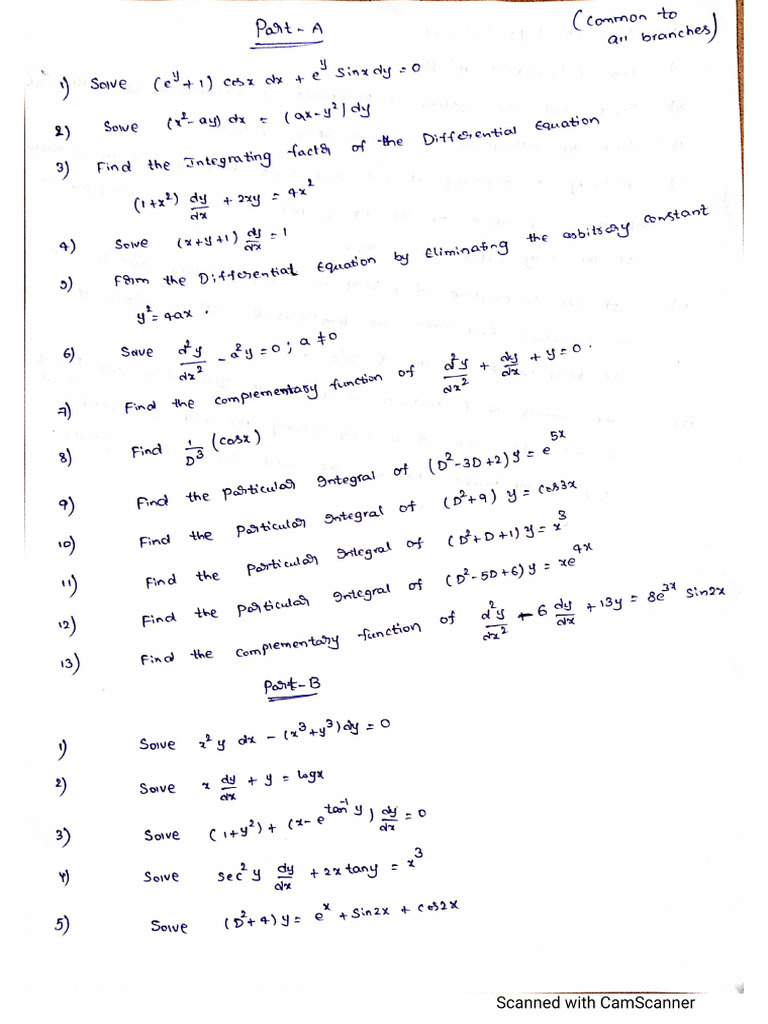 Part-A
(Common to
all branches)
1) Solve (e^y+1) cosx dx + e^y sinx dy = 0
2) Solve (x²-ay) dx = (ax-y²) dy
3) Find the Integrating factor of the Differential Equation
(1+x²) dy/dx + 2xy = 4x²
4) Solve (x+y+1) dy/dx = 1
5) Form the Differential Equation by Eliminating the arbitrary constant
y² = 4ax.
6) Solve d²y/dx² - a²y = 0; a ≠ 0
7) Find the complementary function of d²y/dx² + dy/dx + y = 0.
8) Find 1/D³ (cosx)
9) Find the Particular Integral of (D²-3D+2)y = e^5x
10) Find the Particular Integral of (D²+9) y = cos3x
11) Find the Particular Integral of (D²+D+1)y = x³
12) Find the Particular Integral of (D²-5D+6)y = xe^4x
13) Find the complementary function of d²y/dx² - 6 dy/dx + 13y = 8e^3x sin2x
Part-B
1) Solve x²y dx - (x³+y³)dy = 0
2) Solve x dy/dx + y = logx
3) Solve (1+y²) + (x-e^tan⁻¹y) dy/dx = 0
4) Solve sec²y dy/dx + 2x tany = x³
5) Solve (D²+4)y = e^x + sin2x + cos2x
Scanned with CamScanner